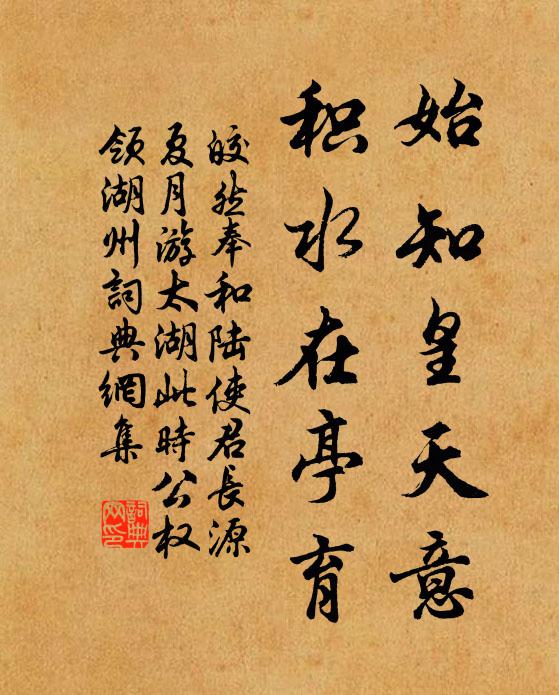 始知皇天意
积水在亭育
皎然奉和陆使君长源
夏月游太湖此時公权
领湖州詞典網集
詞典
网印